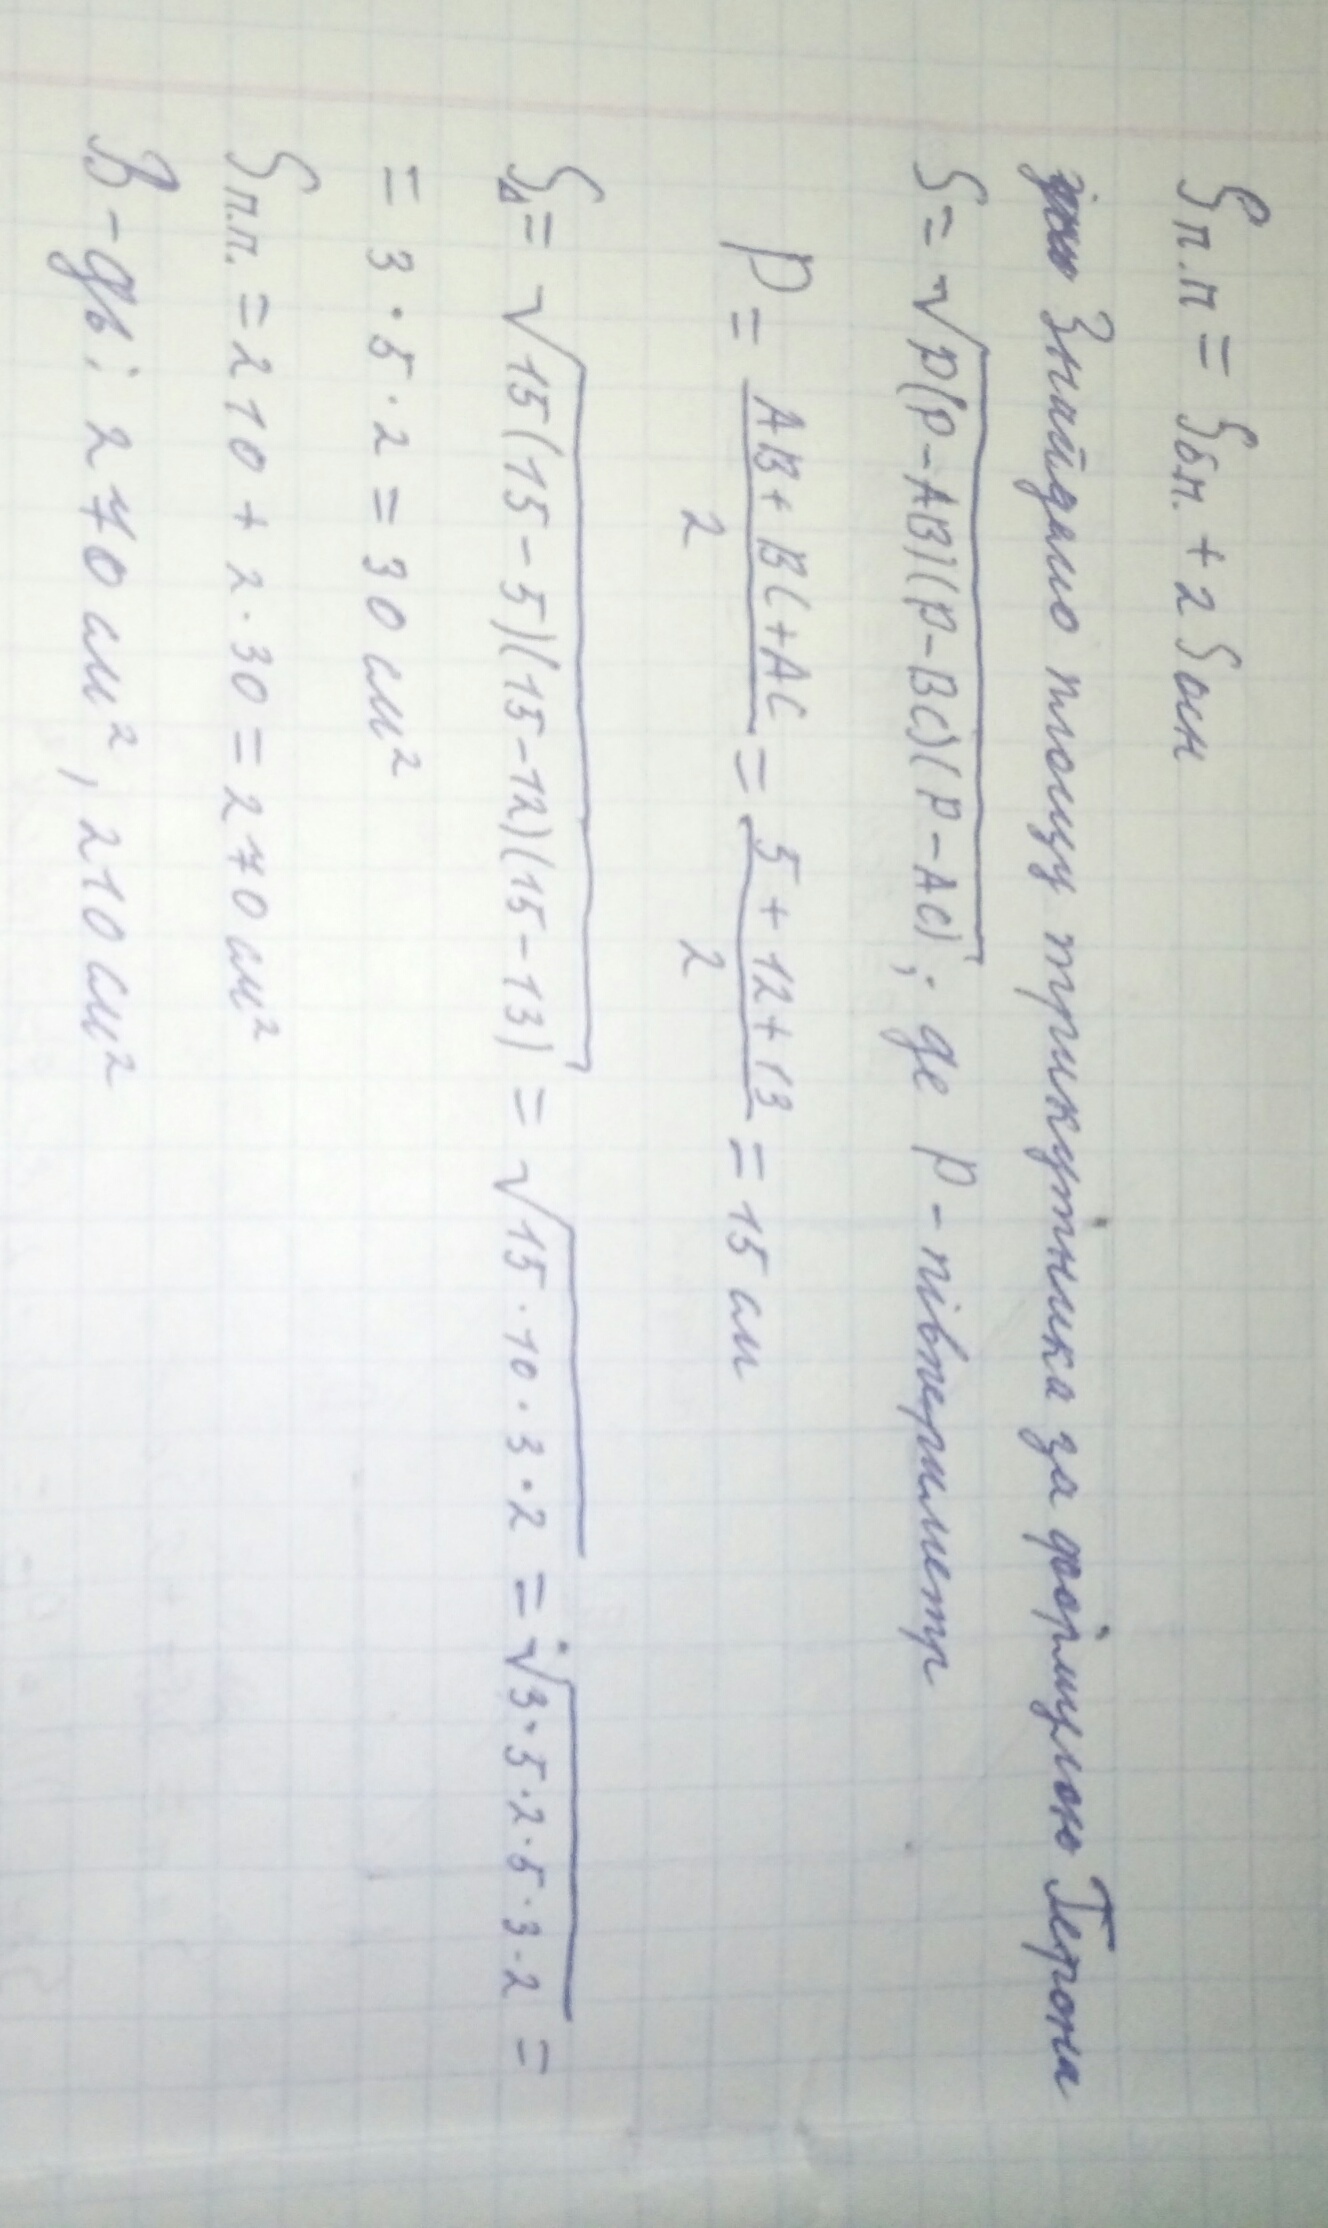 Sп.п = Sб.п. + 2 Sосн
Знайдемо площу трикутника за формулою Герона
S = √(P(P-AB)(P-BC)(P-AC)) ; де P - півпериметр
P = (AB + BC + AC)/2 = (5 + 12 + 13)/2 = 15 см
S△ = √(15(15-5)(15-12)(15-13)) = √(15·10·3·2) = √(3·5·2·5·3·2) =
= 3·5·2 = 30 см²
Sп.п. = 210 + 2·30 = 270 см²
В-дь: 270 см², 210 см²